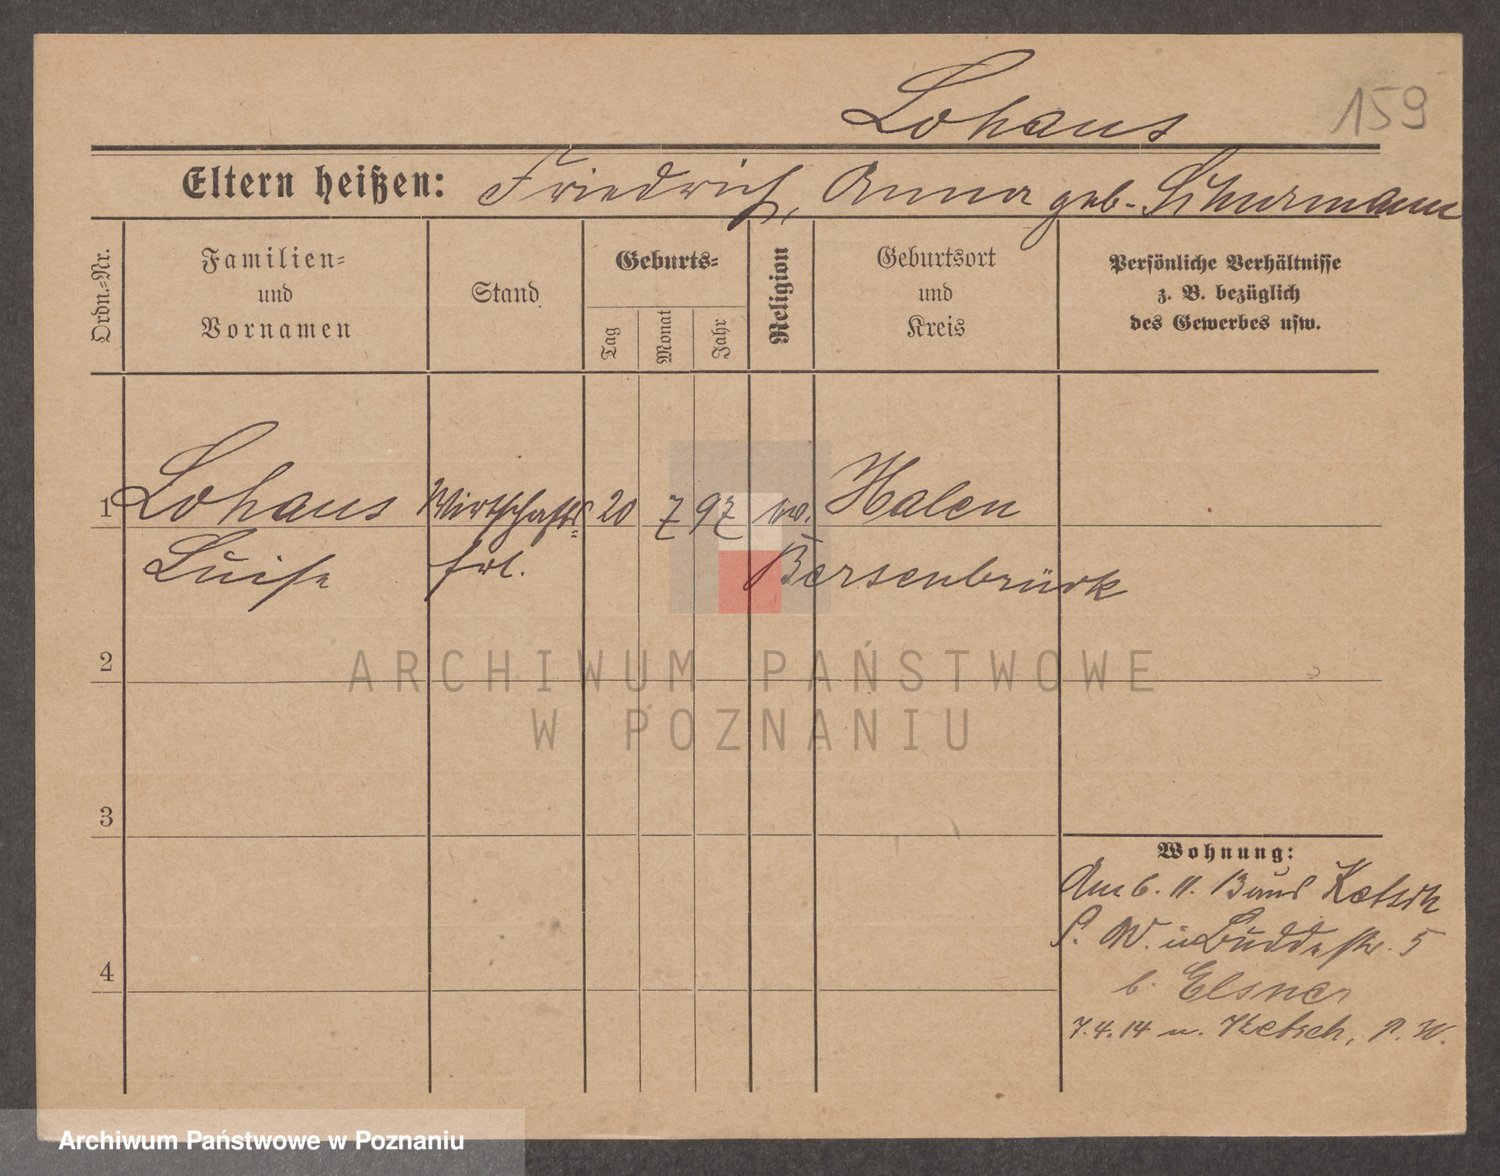 Lohaus 159
Eltern heißen: Friedrich, Anna geb. Schurmann
Ordn.=Nr.
Familien=
und
Vornamen
Stand
Geburts=
Tag
Monat
Jahr
Religion
Geburtsort
und
Kreis
Persönliche Verhältnisse
z. B. bezüglich
des Gewerbes usw.
1 Lohaus Wirtschafts= 20 7 97 Halen
Luise frl. Bersenbrück
2
3
4
Wohnung:
Ketsch
P. W. in Buddestr. 5
b. Elsner
7.4.14 n. Ketsch, P. W.
ARCHIWUM PAŃSTWOWE
W POZNANIU
Archiwum Państwowe w Poznaniu